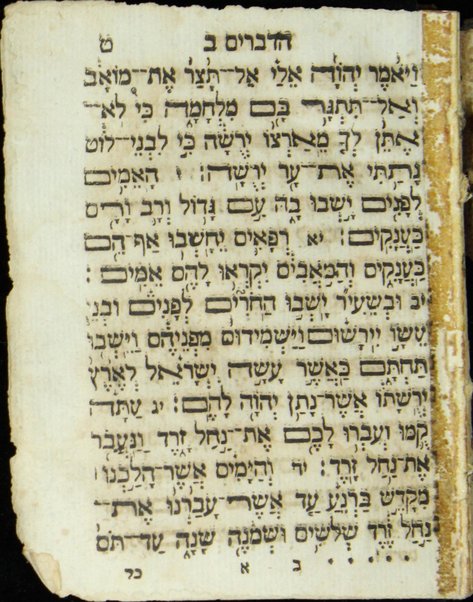 הדברים ב ט
וַיֹּאמֶר יְהוָֹה אֵלַי אַל־תָּצַר אֶת־מוֹאָב
וְאַל־תִּתְגָּר בָּם מִלְחָמָה כִּי לֹא־
אֶתֵּן לְךָ מֵאַרְצוֹ יְרֻשָּׁה כִּי לִבְנֵי־לוֹט
נָתַתִּי אֶת־עָר יְרֻשָּׁה׃ י הָאֵמִים
לְפָנִים יָשְׁבוּ בָהּ עַם גָּדוֹל וְרַב וָרָם
כָּעֲנָקִים׃ יא רְפָאִים יֵחָשְׁבוּ אַף־הֵם
כָּעֲנָקִים וְהַמֹּאָבִים יִקְרְאוּ לָהֶם אֵמִים׃
יב וּבְשֵׂעִיר יָשְׁבוּ הַחֹרִים לְפָנִים וּבְנֵי
עֵשָׂו יִירָשׁוּם וַיַּשְׁמִידוּם מִפְּנֵיהֶם וַיֵּשְׁבוּ
תַּחְתָּם כַּאֲשֶׁר עָשָׂה יִשְׂרָאֵל לְאֶרֶץ
יְרֻשָּׁתוֹ אֲשֶׁר־נָתַן יְהוָֹה לָהֶם׃ יג עַתָּה
קֻמוּ וְעִבְרוּ לָכֶם אֶת־נַחַל זָרֶד וַנַּעֲבֹר
אֶת־נַחַל זָרֶד׃ יד וְהַיָּמִים אֲשֶׁר־הָלַכְנוּ
מִקָּדֵשׁ בַּרְנֵעַ עַד אֲשֶׁר־עָבַרְנוּ אֶת־
נַחַל זֶרֶד שְׁלֹשִׁים וּשְׁמֹנֶה שָׁנָה עַד־תֹּם
ב א כל